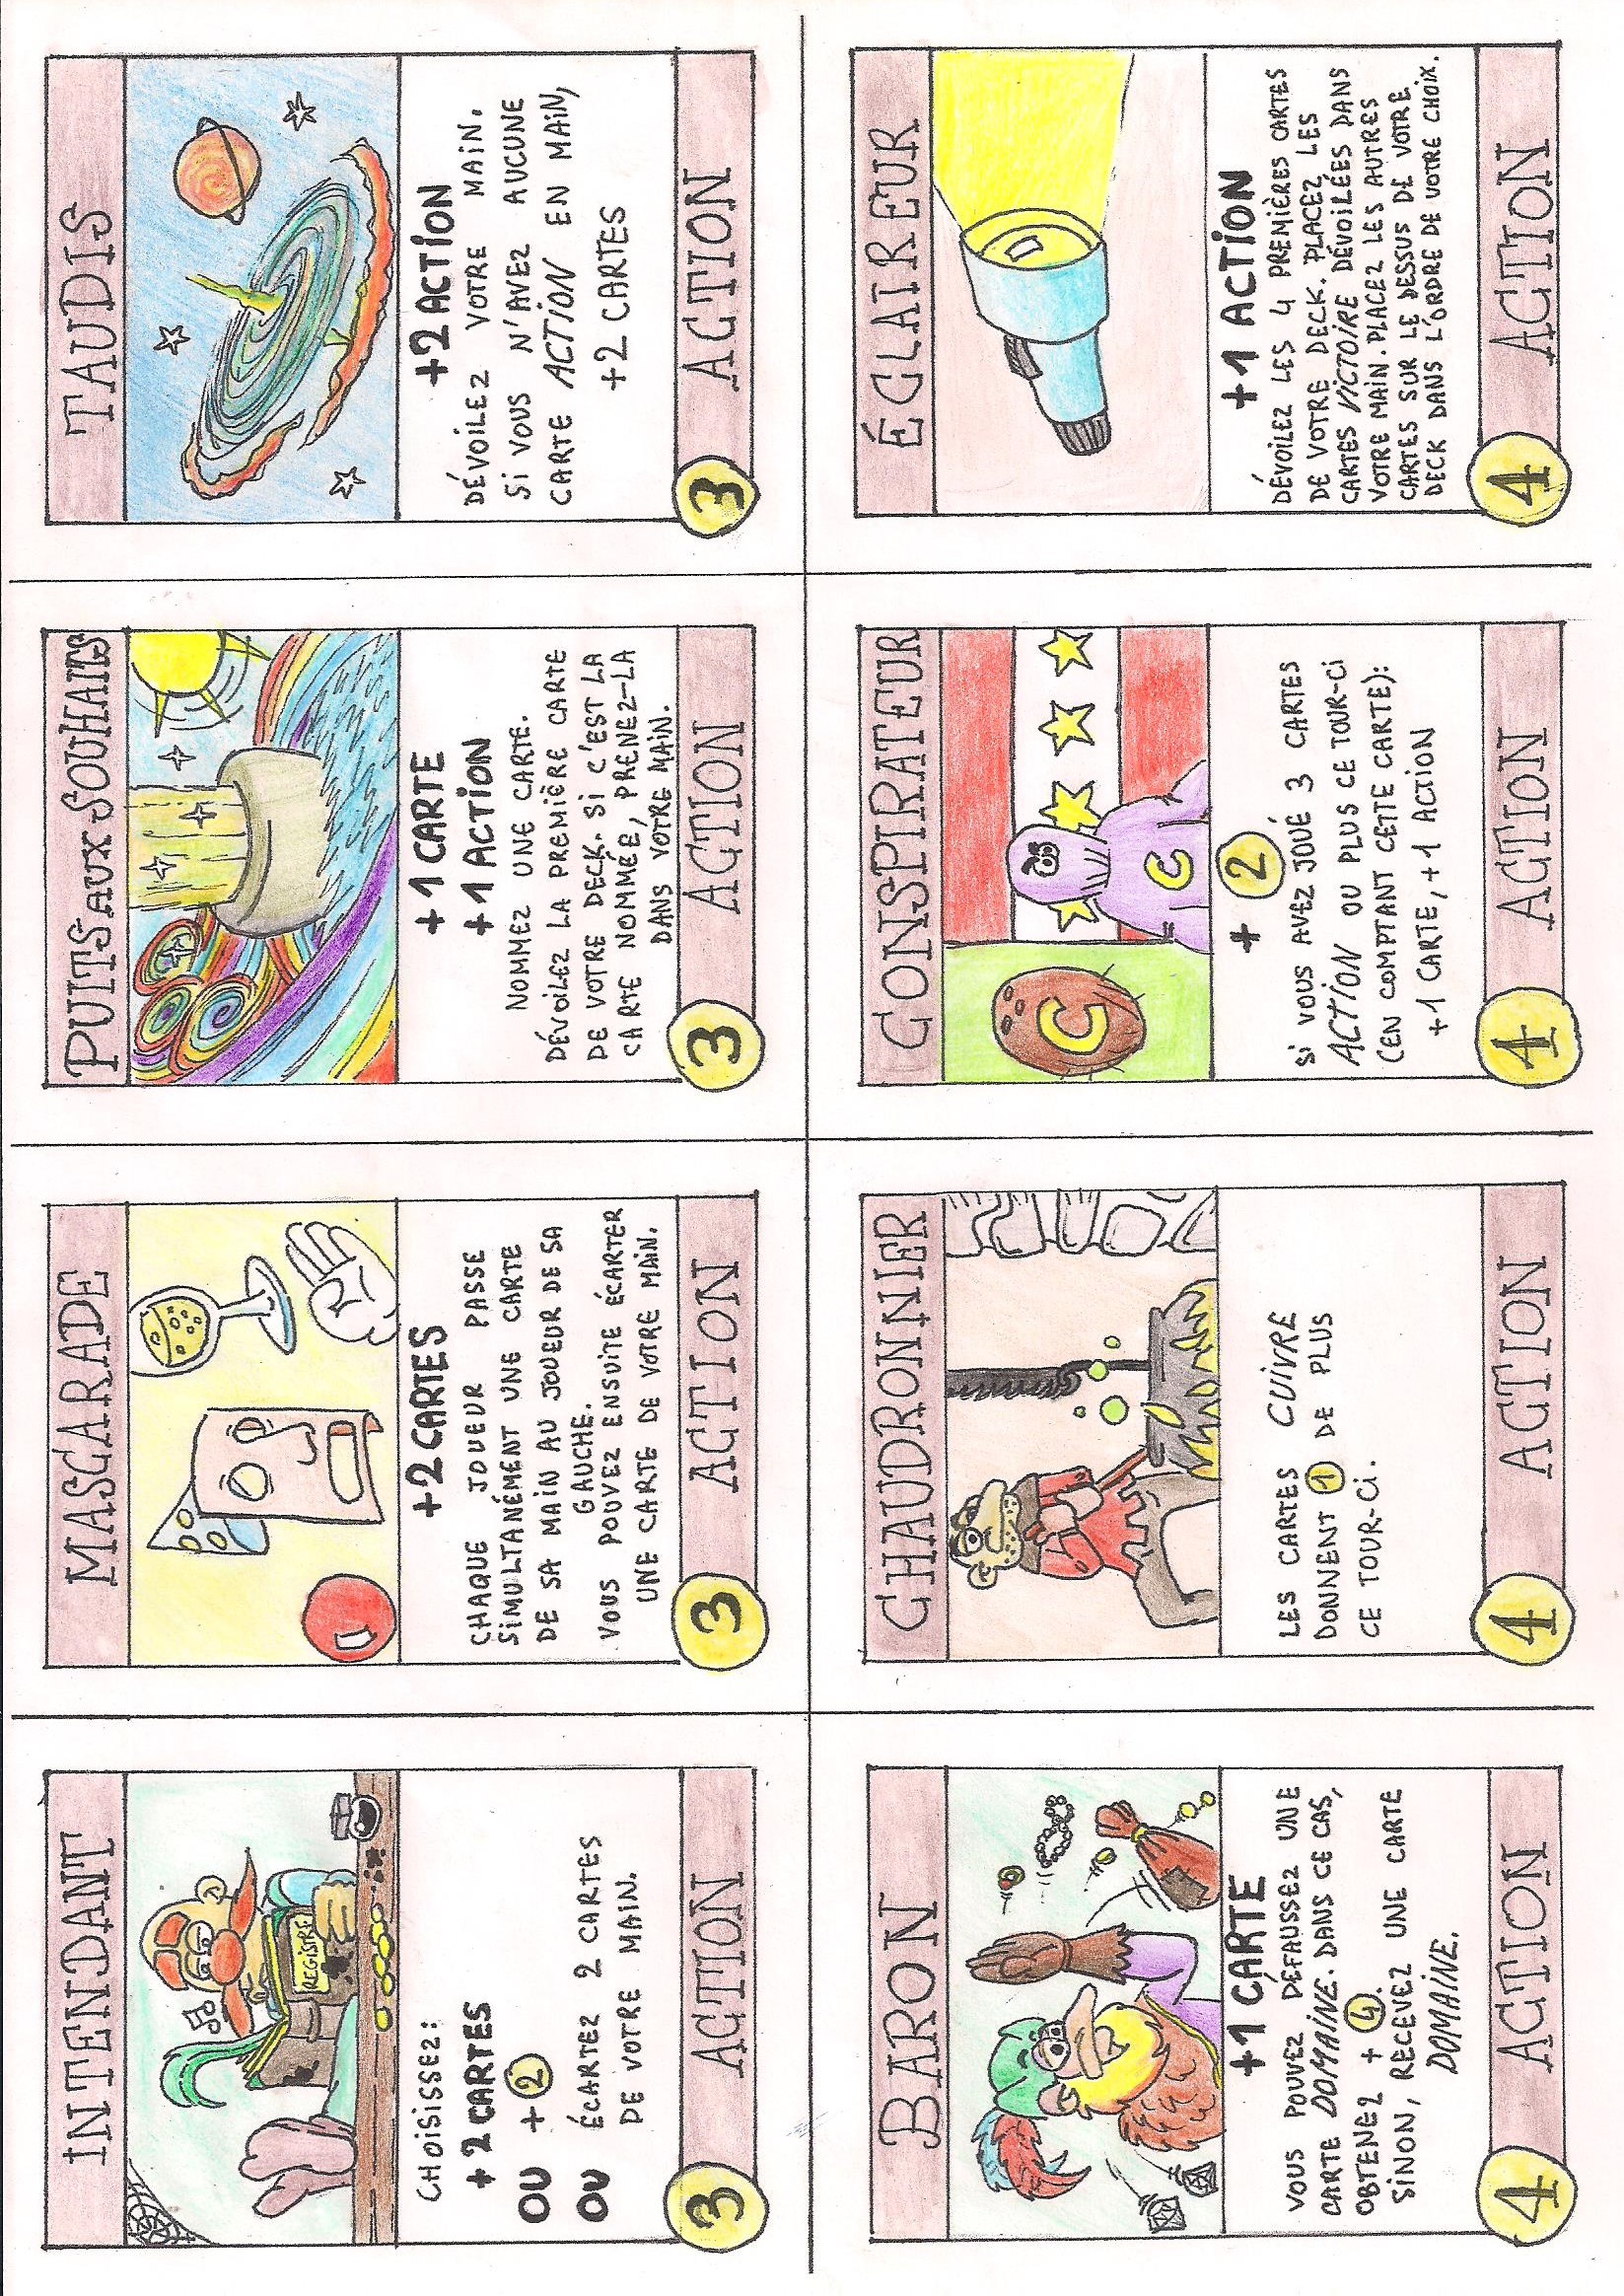 INTENDANT
REGISTRE
CHOISISSEZ:
+2 CARTES
OU +2
OU ÉCARTEZ 2 CARTES
DE VOTRE MAIN.
3 ACTION
MASCARADE
+2 CARTES
CHAQUE JOUEUR PASSE
SIMULTANÉMENT UNE CARTE
DE SA MAIN AU JOUEUR DE SA
GAUCHE.
VOUS POUVEZ ENSUITE ÉCARTER
UNE CARTE DE VOTRE MAIN.
3 ACTION
PUITS AUX SOUHAITS
+1 CARTE
+1 ACTION
NOMMEZ UNE CARTE.
DÉVOILEZ LA PREMIÈRE CARTE
DE VOTRE DECK. SI C'EST LA
CARTE NOMMÉE, PRENEZ-LA
DANS VOTRE MAIN.
3 ACTION
TAUDIS
+2 ACTION
DÉVOILEZ VOTRE MAIN.
SI VOUS N'AVEZ AUCUNE
CARTE ACTION EN MAIN,
+2 CARTES
3 ACTION
BARON
+1 CARTE
VOUS POUVEZ DÉFAUSSEZ UNE
CARTE DOMAINE. DANS CE CAS,
OBTENEZ + 4.
SINON, RECEVEZ UNE CARTE
DOMAINE.
4 ACTION
CHAUDRONNIER
LES CARTES CUIVRE
DONNENT 1 DE PLUS
CE TOUR-CI.
4 ACTION
CONSPIRATEUR
C
C
+ 2
SI VOUS AVEZ JOUÉ 3 CARTES
ACTION OU PLUS CE TOUR-CI
(EN COMPTANT CETTE CARTE):
+1 CARTE, +1 ACTION
4 ACTION
ÉCLAIREUR
+1 ACTION
DÉVOILEZ LES 4 PREMIÈRES CARTES
DE VOTRE DECK. PLACEZ LES
CARTES VICTOIRE DÉVOILÉES DANS
VOTRE MAIN. PLACEZ LES AUTRES
CARTES SUR LE DESSUS DE VOTRE
DECK DANS L'ORDRE DE VOTRE CHOIX.
4 ACTION